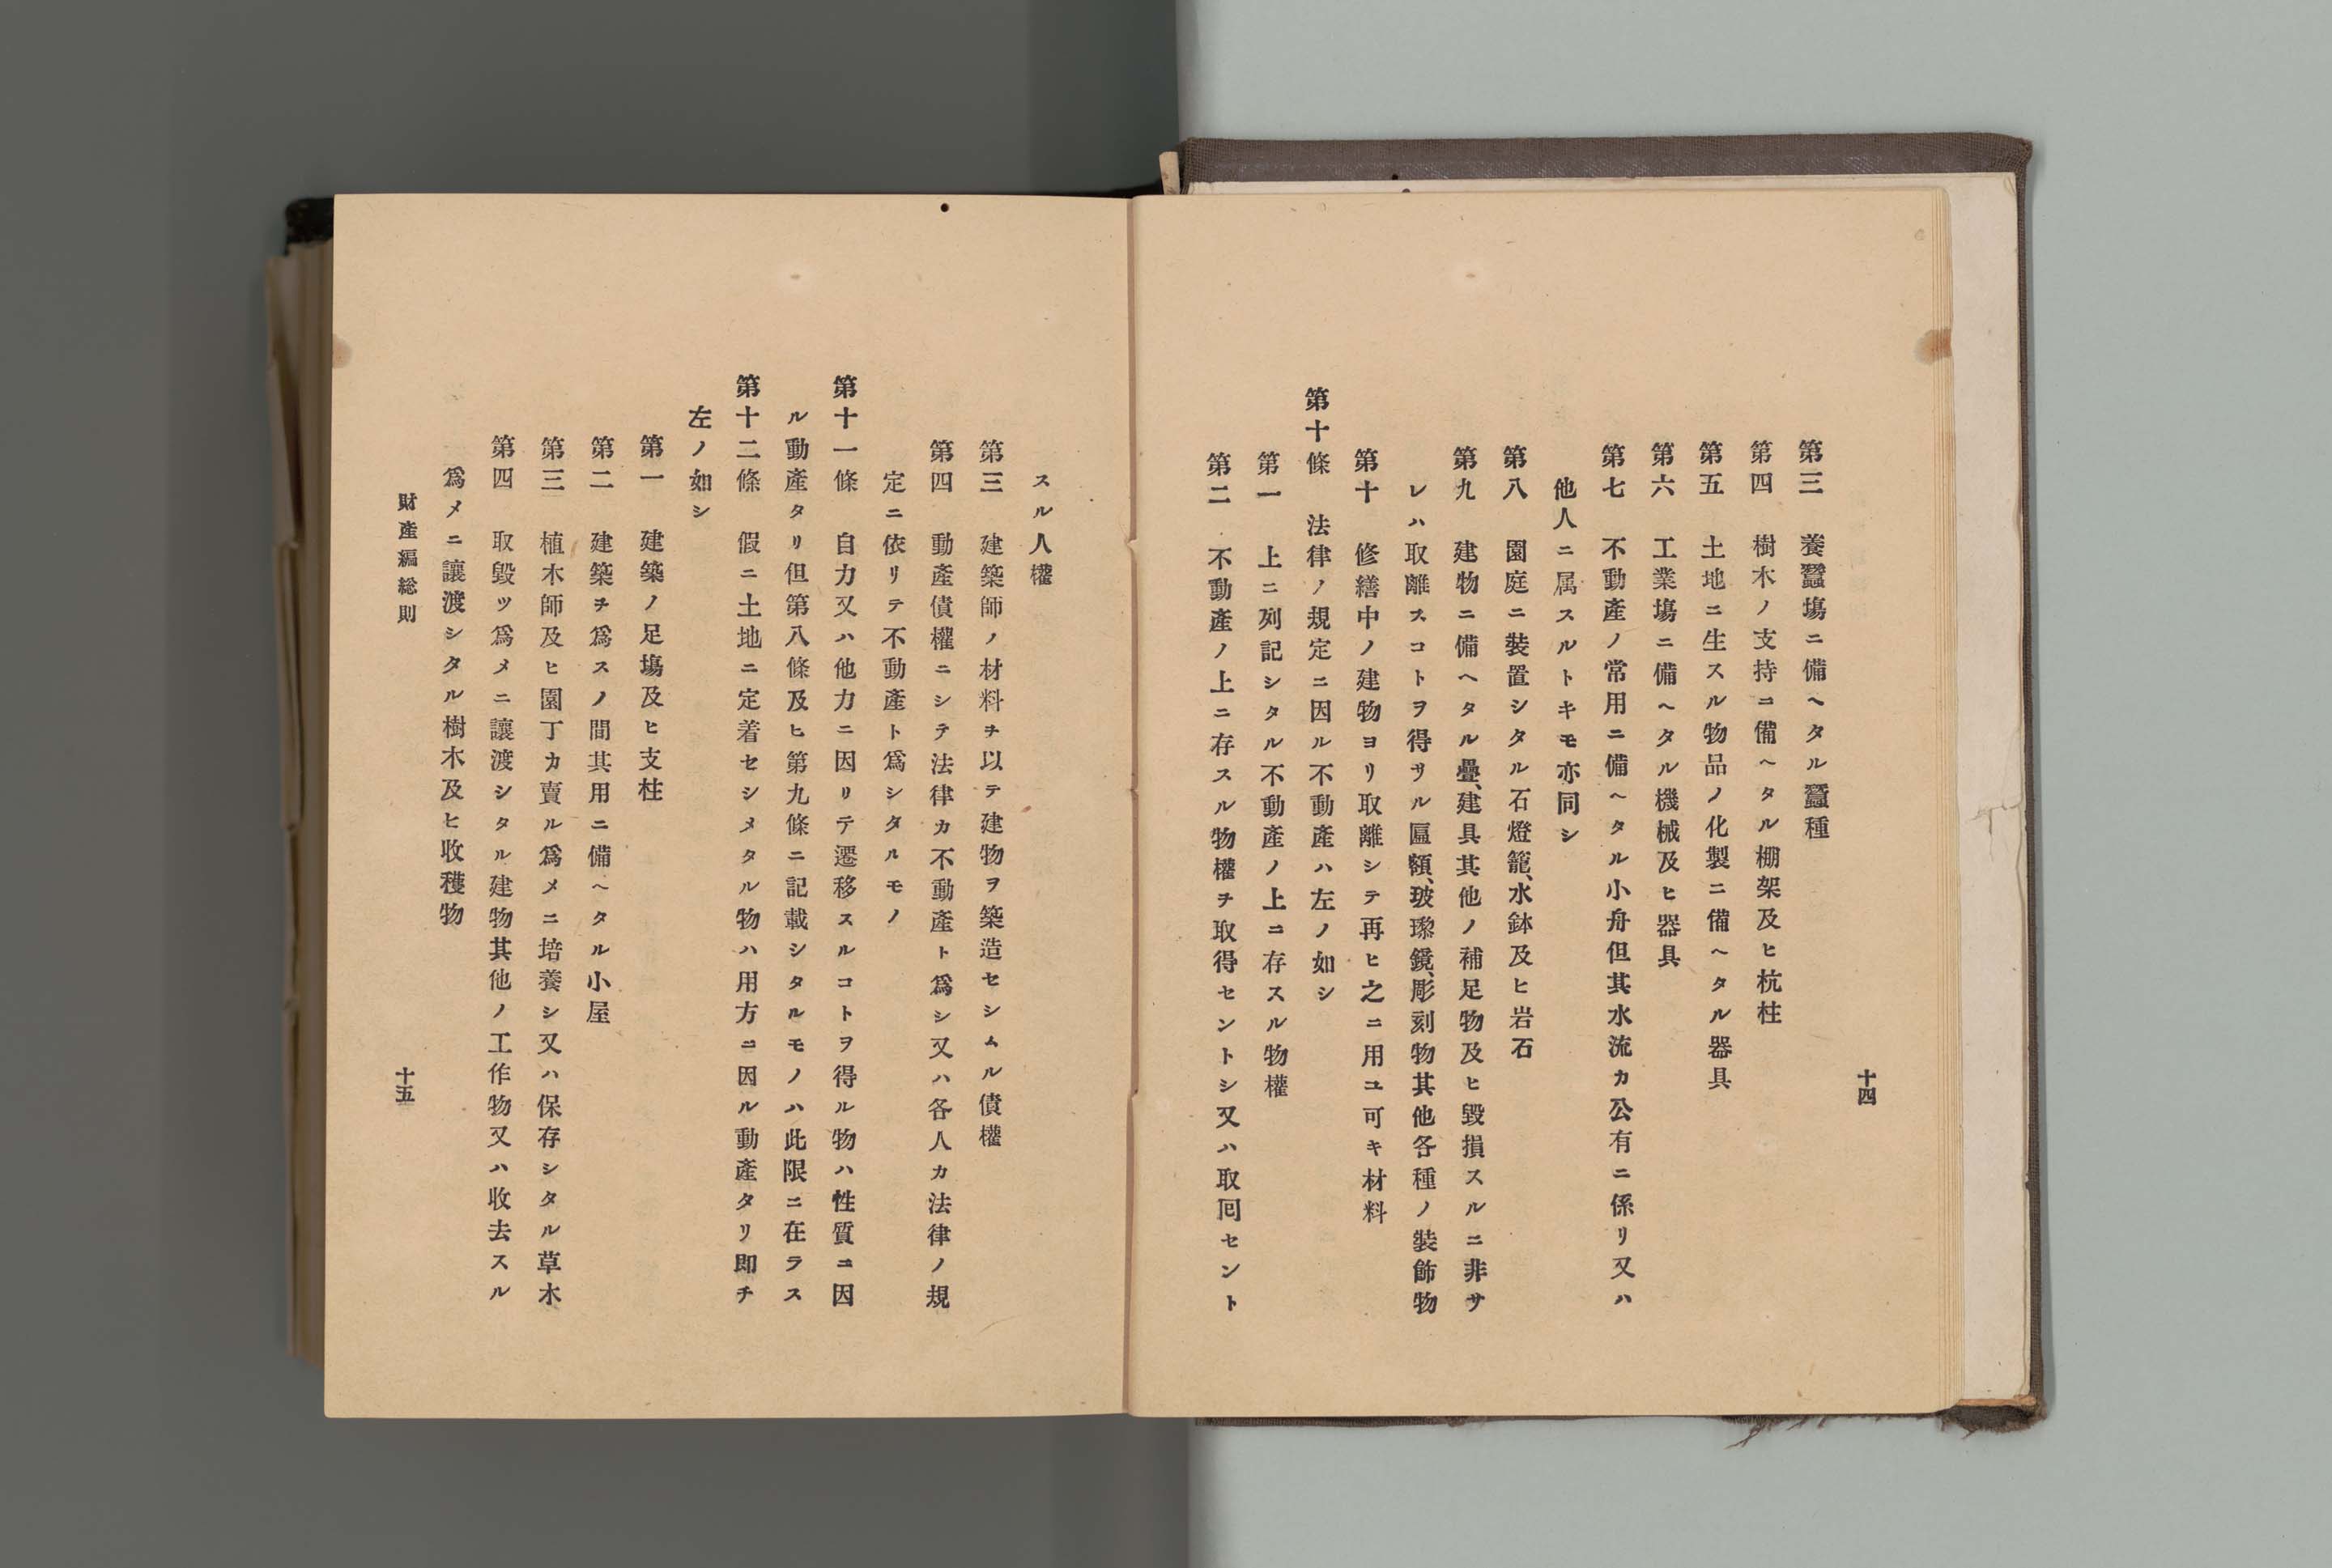 十四
第三　養蠶塲ニ備ヘタル蠶種
第四　樹木ノ支持ニ備ヘタル棚架及ヒ杭柱
第五　土地ニ生スル物品ノ化製ニ備ヘタル器具
第六　工業塲ニ備ヘタル機械及ヒ器具
第七　不動產ノ常用ニ備ヘタル小舟但其水流カ公有ニ係リ又ハ
他人ニ属スルトキモ亦同シ
第八　園庭ニ裝置シタル石燈籠、水鉢及ヒ岩石
第九　建物ニ備ヘタル疊、建具其他ノ補足物及ヒ毀損スルニ非サ
レハ取離スコトヲ得サル匾額、玻瓈鏡、彫刻物其他各種ノ裝飾物
第十　修繕中ノ建物ヨリ取離シテ再ヒ之ニ用ユ可キ材料
第十條　法律ノ規定ニ因ル不動產ハ左ノ如シ
第一　上ニ列記シタル不動產ノ上ニ存スル物權
第二　不動產ノ上ニ存スル物權ヲ取得セントシ又ハ取囘セント
スル人權
第三　建築師ノ材料ヲ以テ建物ヲ築造セシムル債權
第四　動產債權ニシテ法律カ不動產ト爲シ又ハ各人カ法律ノ規
定ニ依リテ不動產ト爲シタルモノ
第十一條　自力又ハ他力ニ因リテ遷移スルコトヲ得ル物ハ性質ニ因
ル動產タリ但第八條及ヒ第九條ニ記載シタルモノハ此限ニ在ラス
第十二條　假ニ土地ニ定着セシメタル物ハ用方ニ因ル動產タリ即チ
左ノ如シ
第一　建築ノ足塲及ヒ支柱
第二　建築ヲ爲スノ間其用ニ備ヘタル小屋
第三　植木師及ヒ園丁カ賣ル爲メニ培養シ又ハ保存シタル草木
第四　取毀ツ爲メニ讓渡シタル建物其他ノ工作物又ハ收去スル
爲メニ讓渡シタル樹木及ヒ收穫物
財產編総則
十五